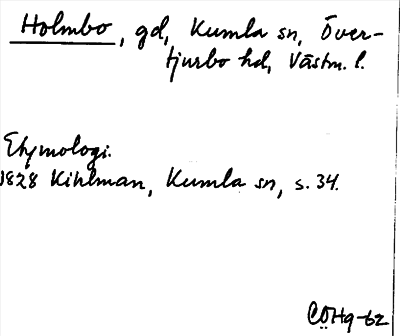 Holmbo, gd, Kumla sn, Över-
tjurbo hd, Västm. l.
Etymologi.
1828 Kihlman, Kumla sn, s. 34.
CÖHg-62